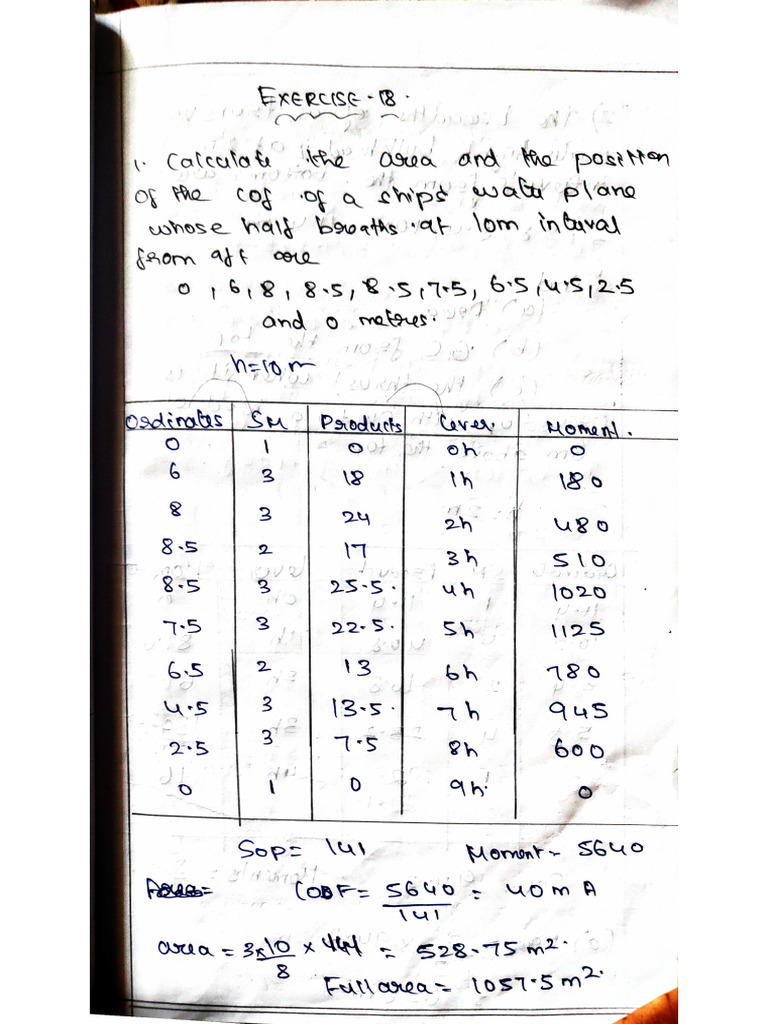 EXERCISE-18.
1. Calculate the area and the position
of the cof of a ships water plane
whose half breaths at 10m interval
from aft are
0, 6, 8, 8.5, 8.5, 7.5, 6.5, 4.5, 2.5
and 0 metres.
h=10m
Ordinates SM Products Lever. Moment.
0 1 0 0h 0
6 3 18 1h 180
8 3 24 2h 480
8.5 2 17 3h 510
8.5 3 25.5. 4h 1020
7.5 3 22.5. 5h 1125
6.5 2 13 6h 780
4.5 3 13.5. 7h 945
2.5 3 7.5 8h 600
0 1 0 9h. 0
SOP = 141 Moment = 5640
COF = 5640/141 = 40m A
area = 3x10/8 x 141 = 528.75 m².
Full area = 1057.5 m².